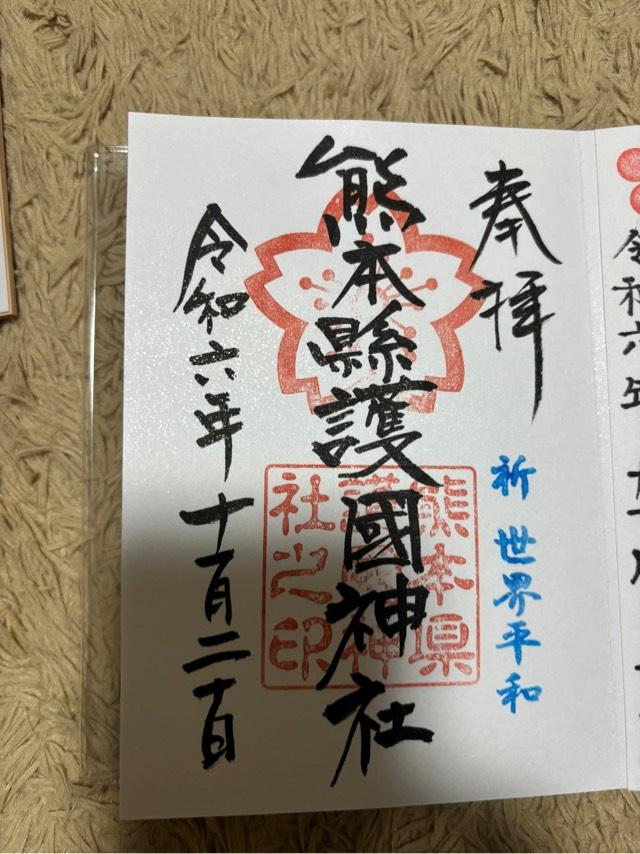 奉拝
祈 世界平和
熊本縣護國神社
熊本県
護國神
社之印
令和六年十一月二十日
令和六年